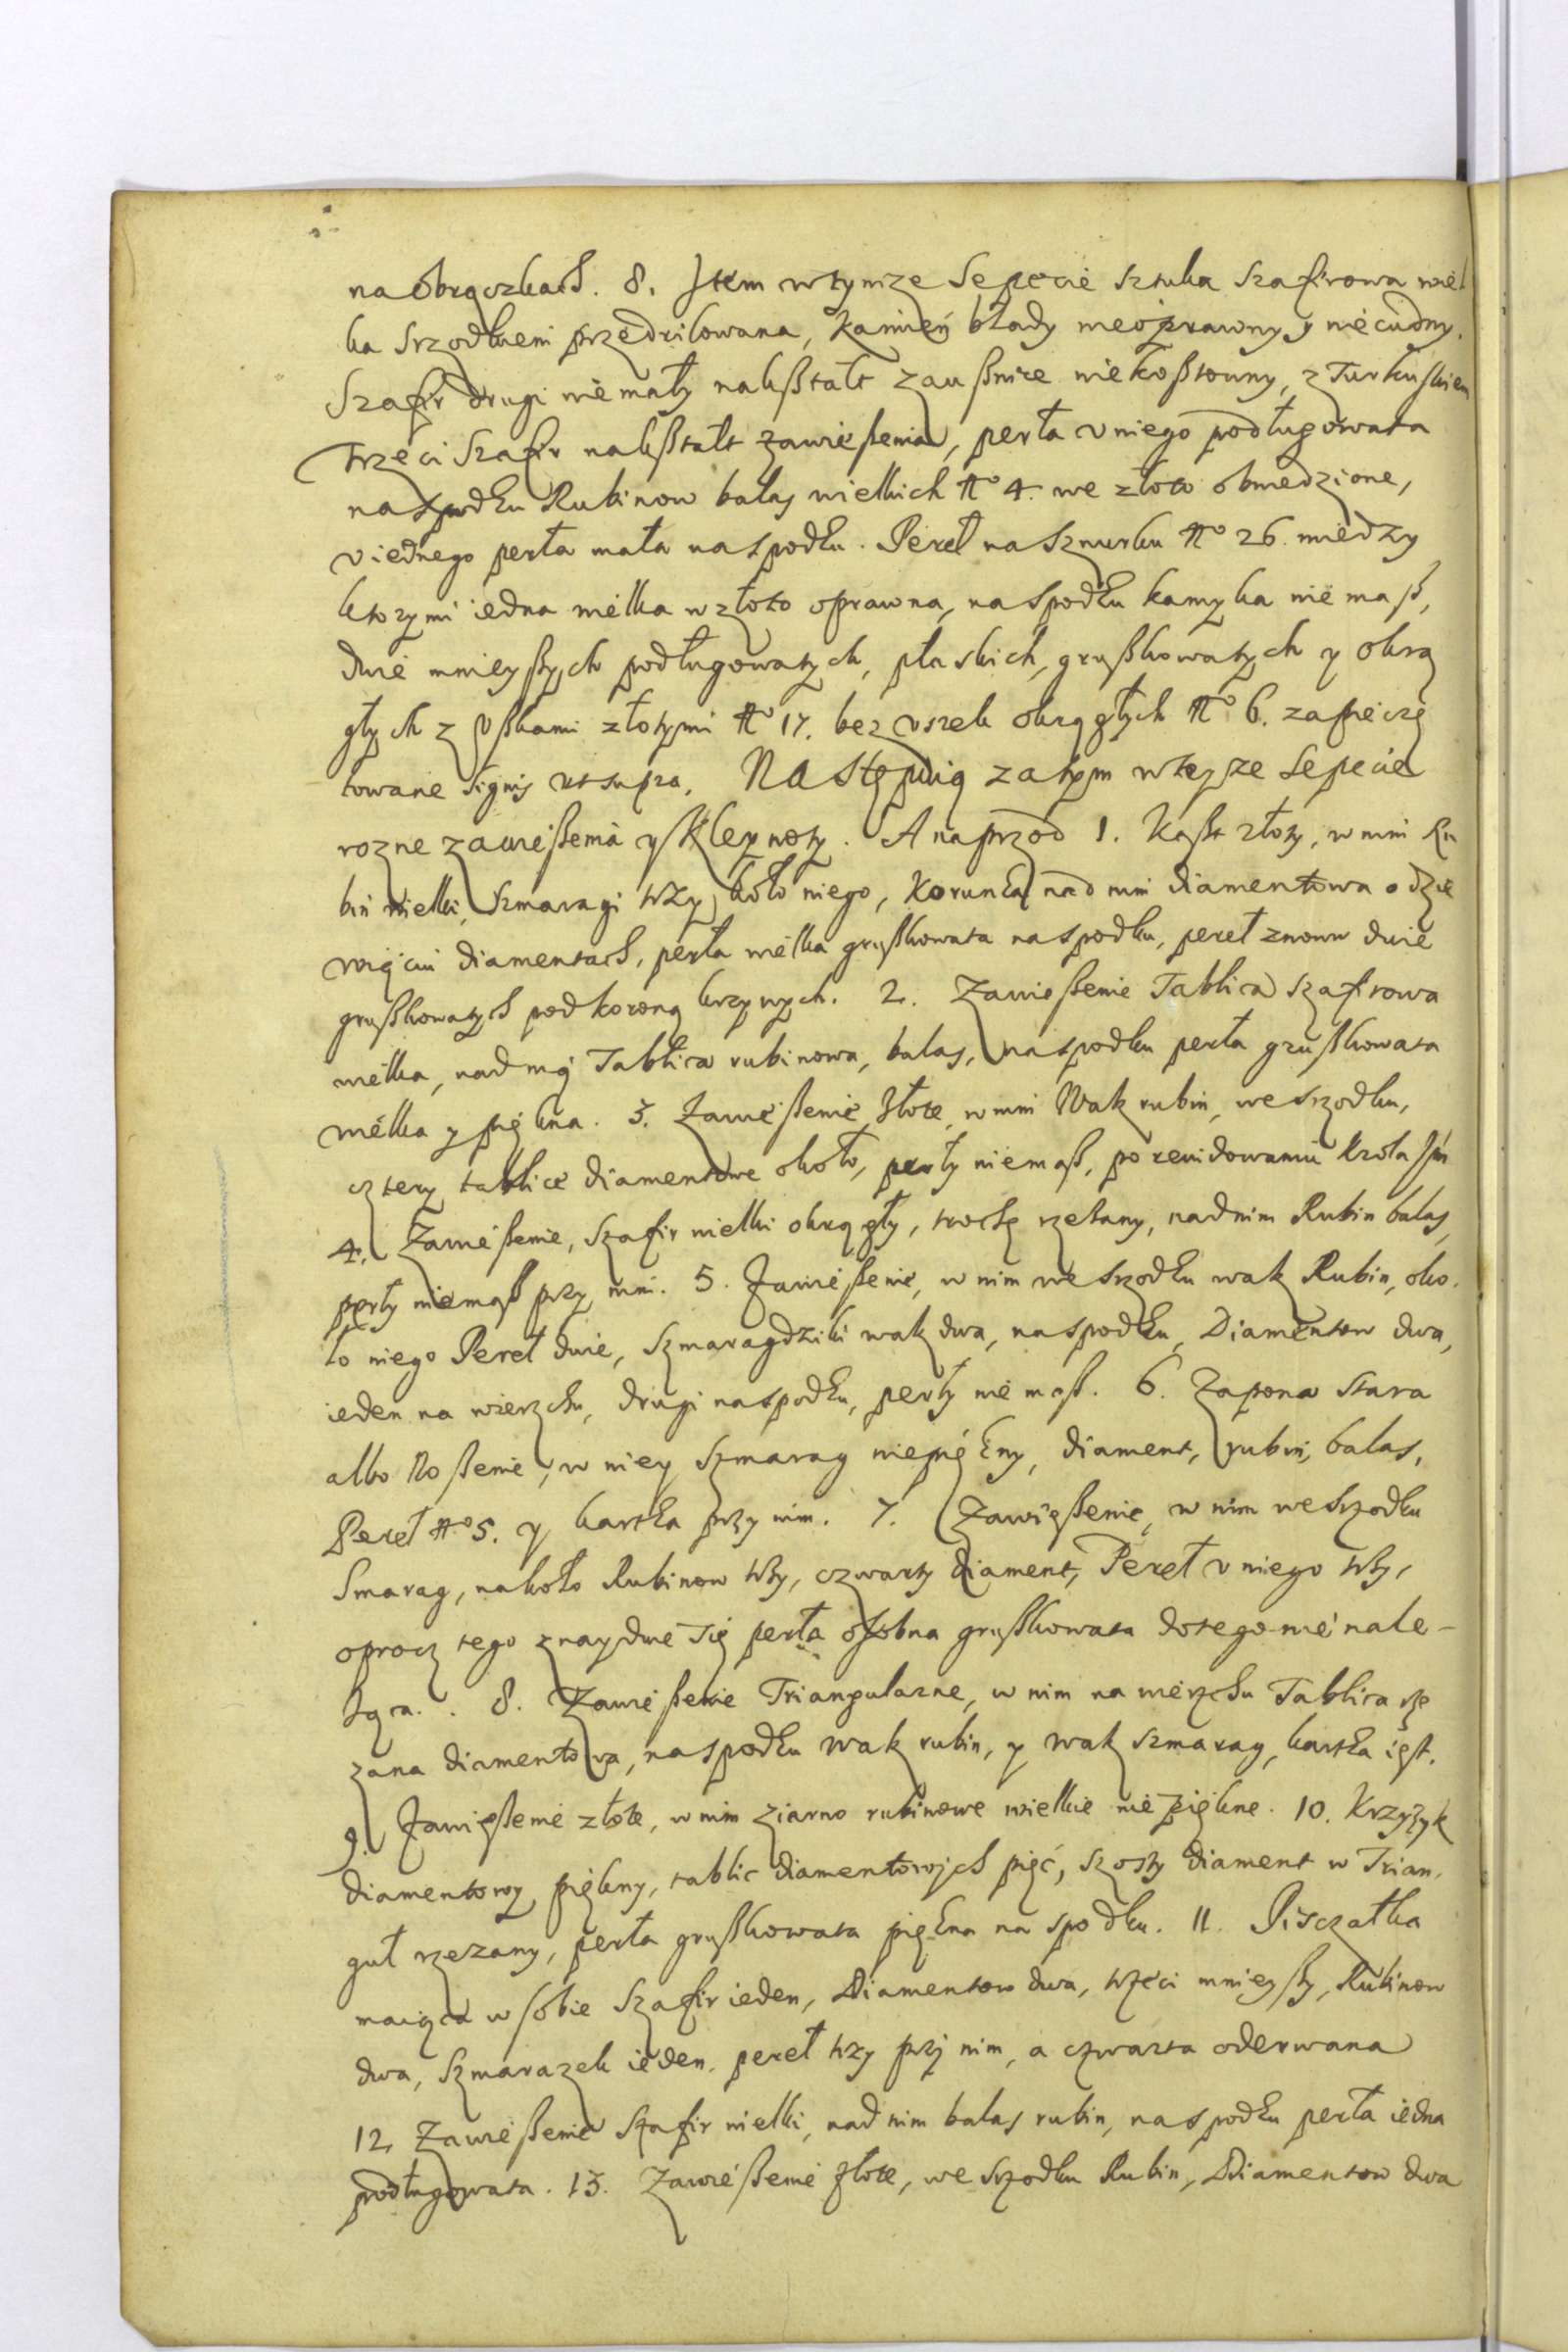 na obrączkach. 8. Item w tymze sepecie sztuka szafirowa wiel
ka srzodkiem przedrilowana, kamień blady nieoprawny y niecudny.
Szafir drugi nie mały nakßtałt zaußnice niekoßtowny, z Turkusikiem
Trzeci Szafir nakßtałt zawießenia, perła v niego podługowata
na spodku Rubinow balas wielkich No 4. we złoto obwiedzione,
v iednego perła mała na spodku. Pereł na sznurku No 26. miedzy
ktorymi iedna wielka w złoto oprawna, na spodku kamyka nie maß,
dwie mnieyßych podługowatych, płaskich, grußkowatych y okrą
głych z vßkami złotymi No 17. bez vszek okrągłych No 6. zapieczę
towane signis ut supra. Następuią zatym w teyze sepecie
rozne zawießenia y kleynoty. A naprzod 1. Kaßt złoty, w nim Ru
bin wielki, Szmaragi trzy koło niego, Korunka nad nim diamentowa o dzie
wiąciu diamentach, perła wielka grußkowata na spodku, pereł znowu dwie
grußkowatych pod koroną krzywych. 2. Zawießenie Tablica szafirowa
wielka, nad nią Tablica rubinowa, balas, na spodku perła grußkowata
wielka y piękna. 3. Zawießenie złote, w nim Wak rubin, we srzodku,
cztery tablice diamentowe około, perły niemaß, po rewidowaniu Krola Jm
4. Zawießenie, Szafir wielki okrągły, trochę rzezany, nad nim Rubin balas,
perły niemaß przy nim. 5. Zawießenie, w nim we srzodku wak Rubin, oko
ło niego Pereł dwie, Szmaragdziki wak dwa, na spodku, Diamentow dwa,
ieden na wierzchu, drugi na spodku, perły nie maß. 6. Zapona stara
albo Noßenie, w niey Szmarag niepiękny, diament, rubin, balas,
Pereł No 5. y kartka przy nim. 7. Zawießenie, w nim we srzodku
Smarag, nakoło Rubinow trzy, czwarty diament, Pereł v niego trzy,
oprocz tego znayduie się perła osobna grußkowata do tego nie nale-
żąca. 8. Zawießenie Triangularne, w nim na wierzchu Tablica rze
zana diamentowa, na spodku wak rubin, y wak szmarag, kartka iest.
9. Zawießenie złote, w nim ziarno rubinowe wielkie nie piękne. 10. Krzyżyk
diamentowy piękny, tablic diamentowych pięć, szosty diament w Trian,
guł rzezany, perła grußkowata piękna na spodku. 11. Pisczałka
maiąca w sobie Szafir ieden, Diamentow dwa, trzeci mnieyßy, Rubinow
dwa, Szmarazek ieden, pereł trzy przy nim, a czwarta oderwana
12. Zawießenie Szafir wielki, nad nim balas rubin, na spodku perła iedna
podługowata. 13. Zawießenie złote, we srzodku Rubin, Diamentow dwa